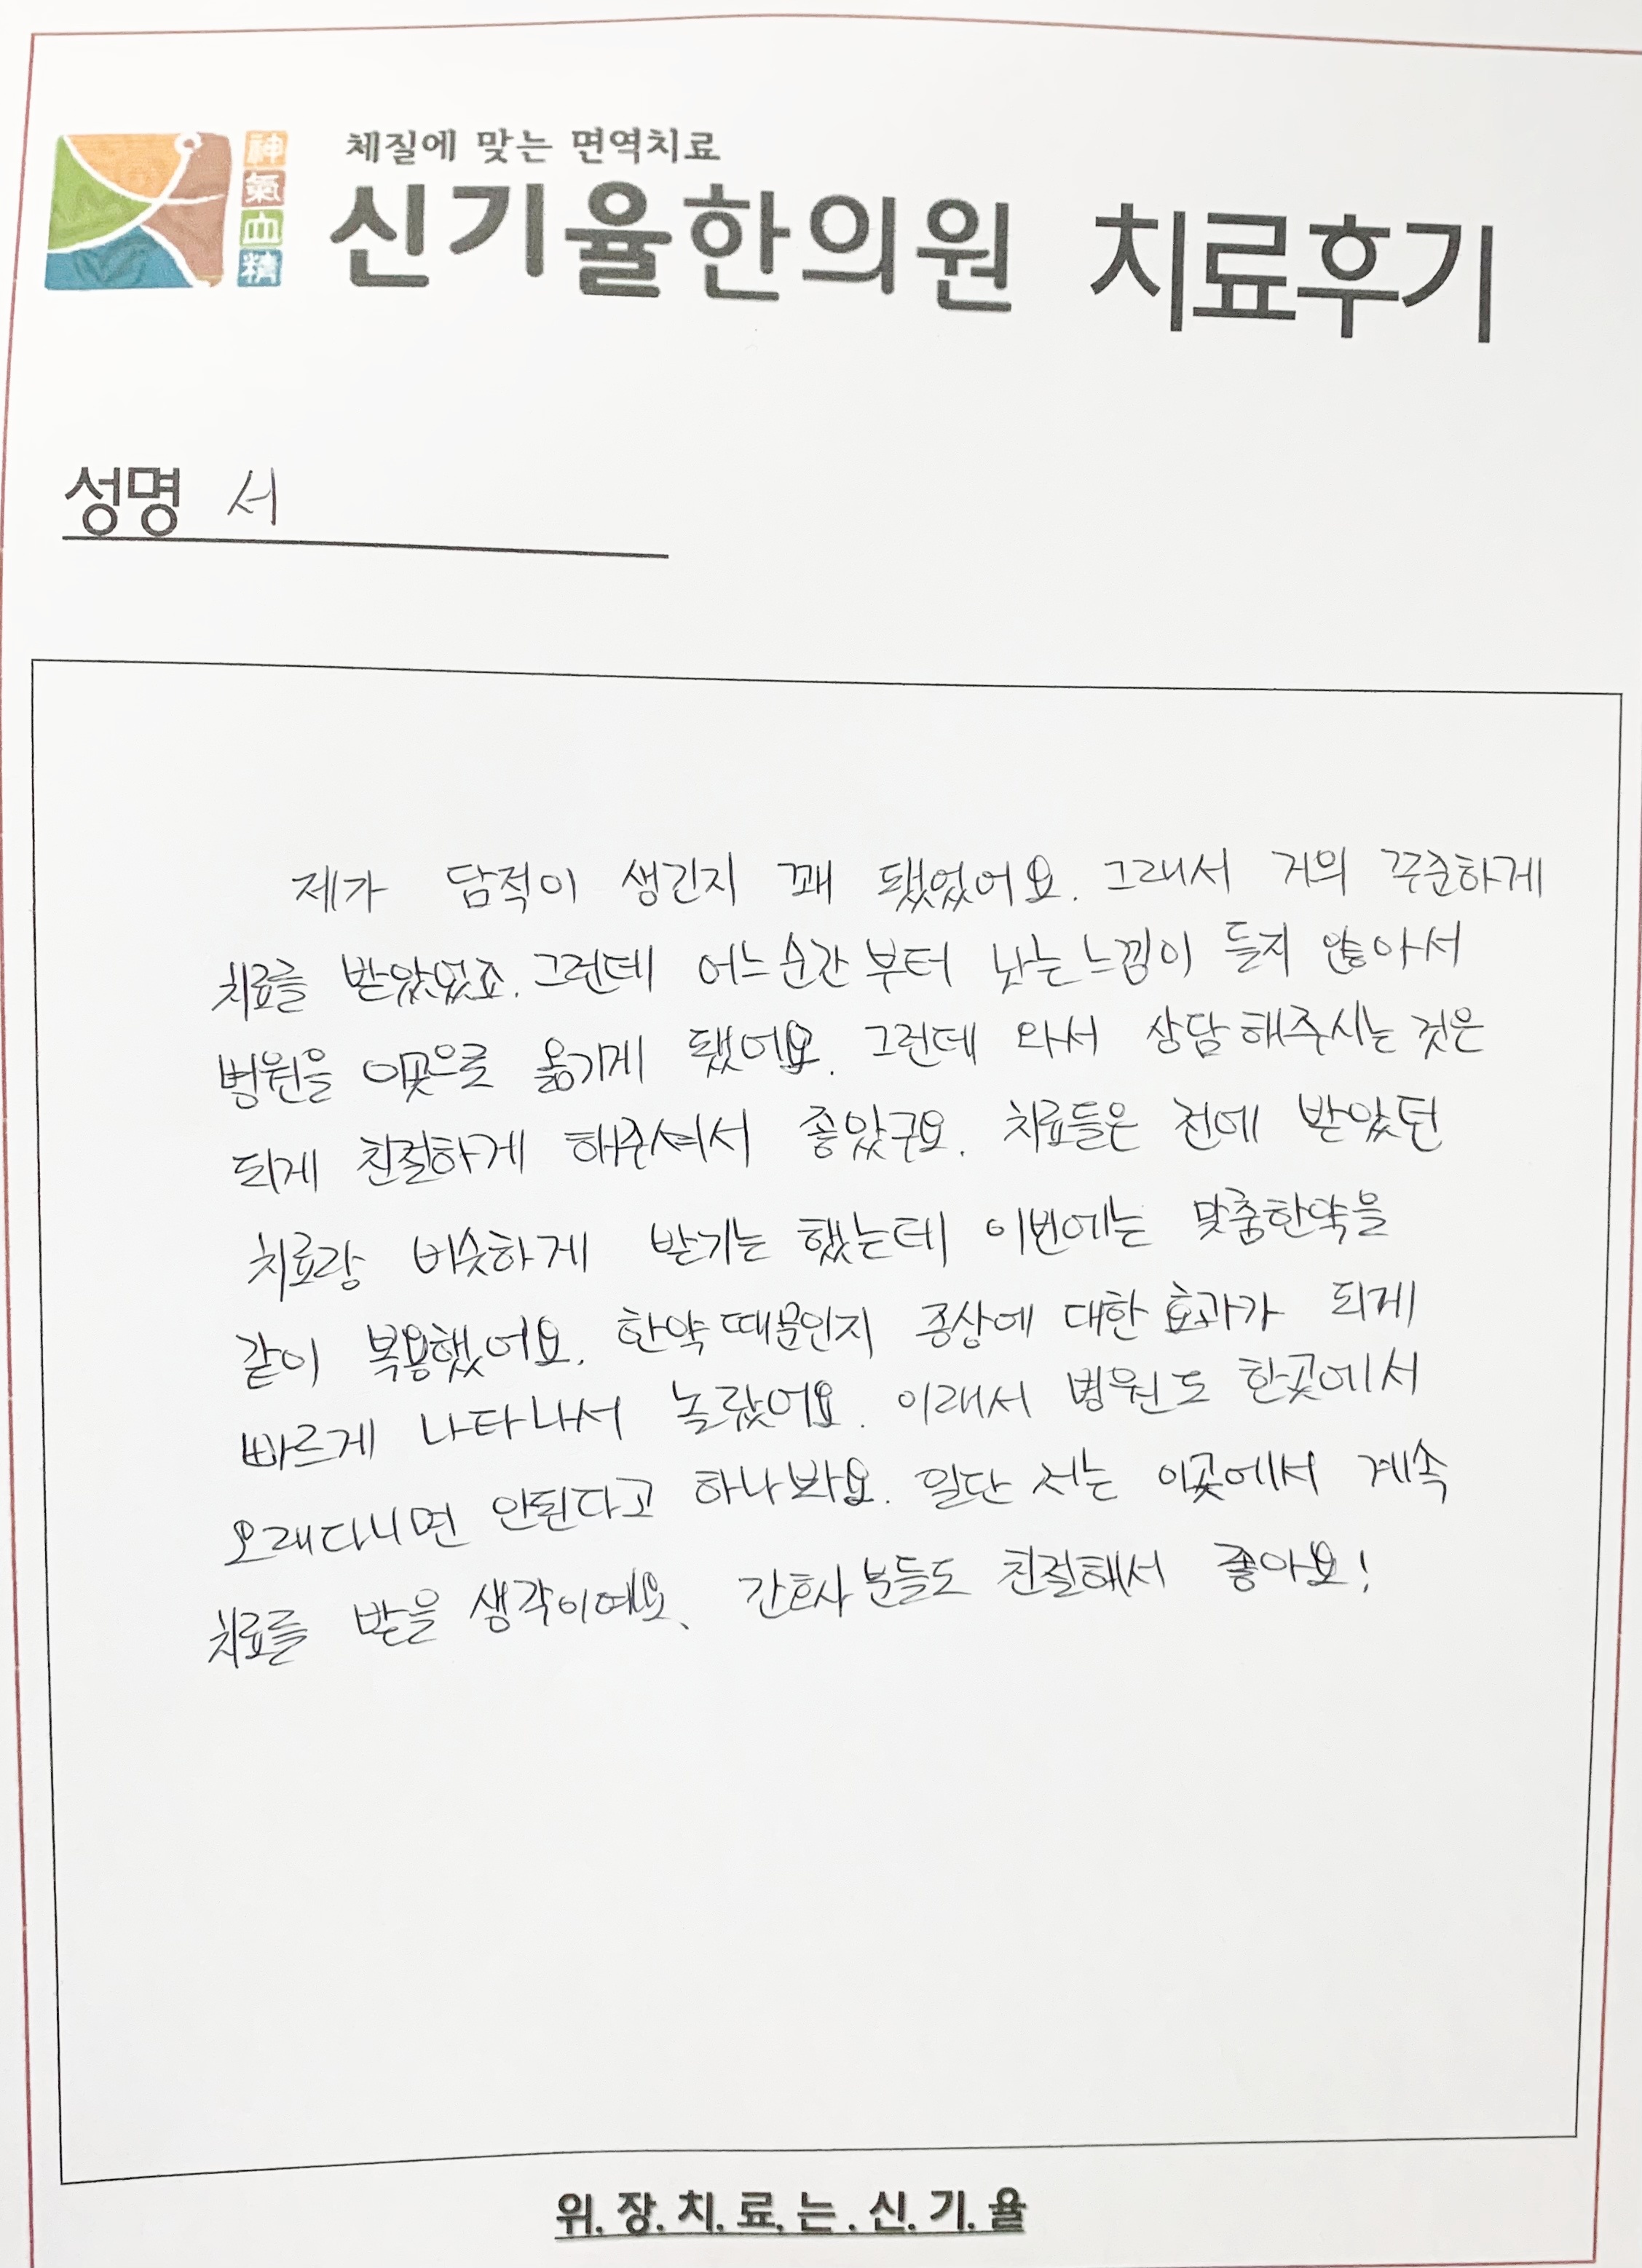 체질에 맞는 면역치료
神氣血精
신기율한의원 치료후기
성명 서
제가 담적이 생긴지 꽤 됐었어요. 그래서 거의 꾸준하게
치료를 받았었죠. 그런데 어느순간부터 낫는느낌이 들지 않아서
병원을 이곳으로 옮기게 됐어요. 그런데 와서 상담해주시는 것은
되게 친절하게 해주셔서 좋았구요. 치료들은 전에 받았던
치료랑 비슷하게 받기는 했는데 이번에는 맞춤한약을
같이 복용했어요. 한약때문인지 증상에 대한 효과가 되게
빠르게 나타나서 놀랐어요. 이래서 병원도 한곳에서
오래다니면 안된다고 하나봐요. 일단 저는 이곳에서 계속
치료를 받을 생각이예요. 간호사분들도 친절해서 좋아요!
위.장.치.료.는.신.기.율